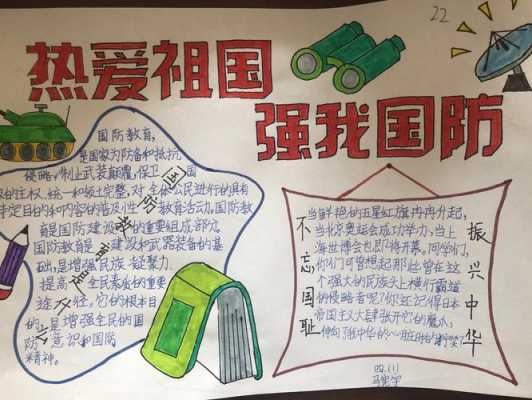 22
热爱祖国
强我国防
国防教育,
是国家为防备和抵抗
侵略,制止武装颠覆,保卫国
的主权、统一和领土完整,对全体公民进行的具有
特定目的和内容的普及性教育活动。国防教
育是国防建设的重要组成部分。
国防教育是建设和武器装备的基
础,是增强民族凝聚力.
提高全民素养的重要
途径。它的根本目
的,是增强全民的国
防意识和国防
精神。
不忘国耻
当鲜艳的五星红旗冉冉升起,
当北京奥运会成功举办,当上
海世博会也即将开幕,同学们,
你们可曾想起那些曾在这
个强大的民族头上横行霸道
的侵略者呢?你还记得日本
帝国主义大肆张开它的魔爪,
伸向中华的心脏时的
振兴中华
四.(1)